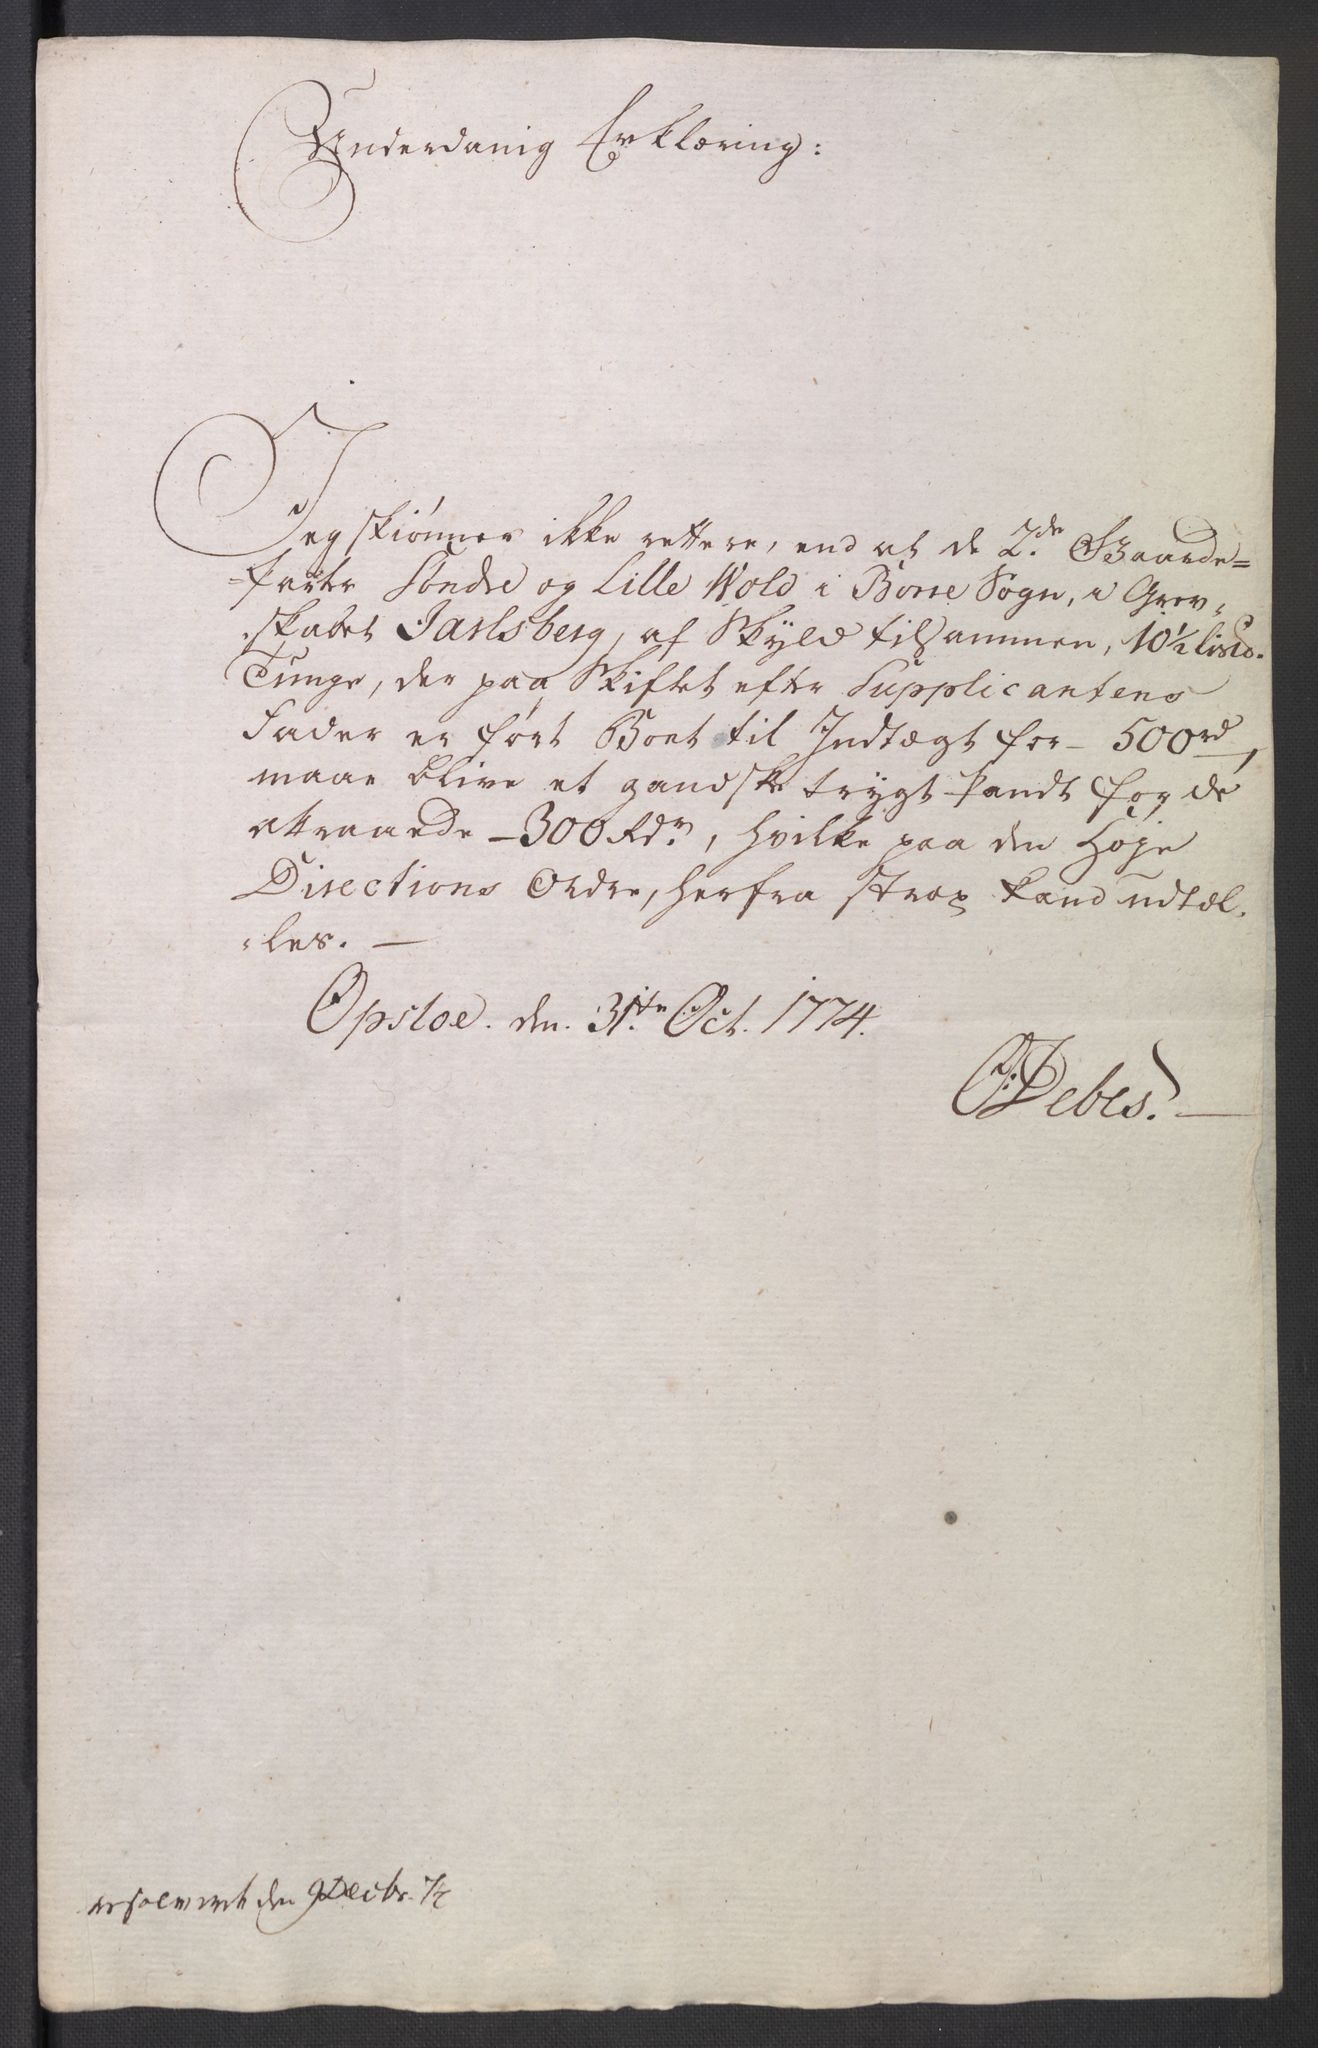 Underdanig Erklæring:
Jeg skiønner ikke rettere, end at de 2de Gaarde=
=parter Søndre og Lille Wold i Borre Sogn, i Grev-
skabet Jarlsberg, af Skyld tilsammen, 10½ Lispd.
Tunge, der paa Skiftet efter Supplicantens
Fader er ført Boet til Indtægt for - 500rd,
maae blive et gandske trygt Pandt for de
attraaede - 300 Rdr., hvilke paa den Høje
Directions Ordre, herfra strax kand udtæl-
-les. —
Opsloe. den. 31te Oct. 1774.
Debes. —
resolveret den 9 Decbr. 74